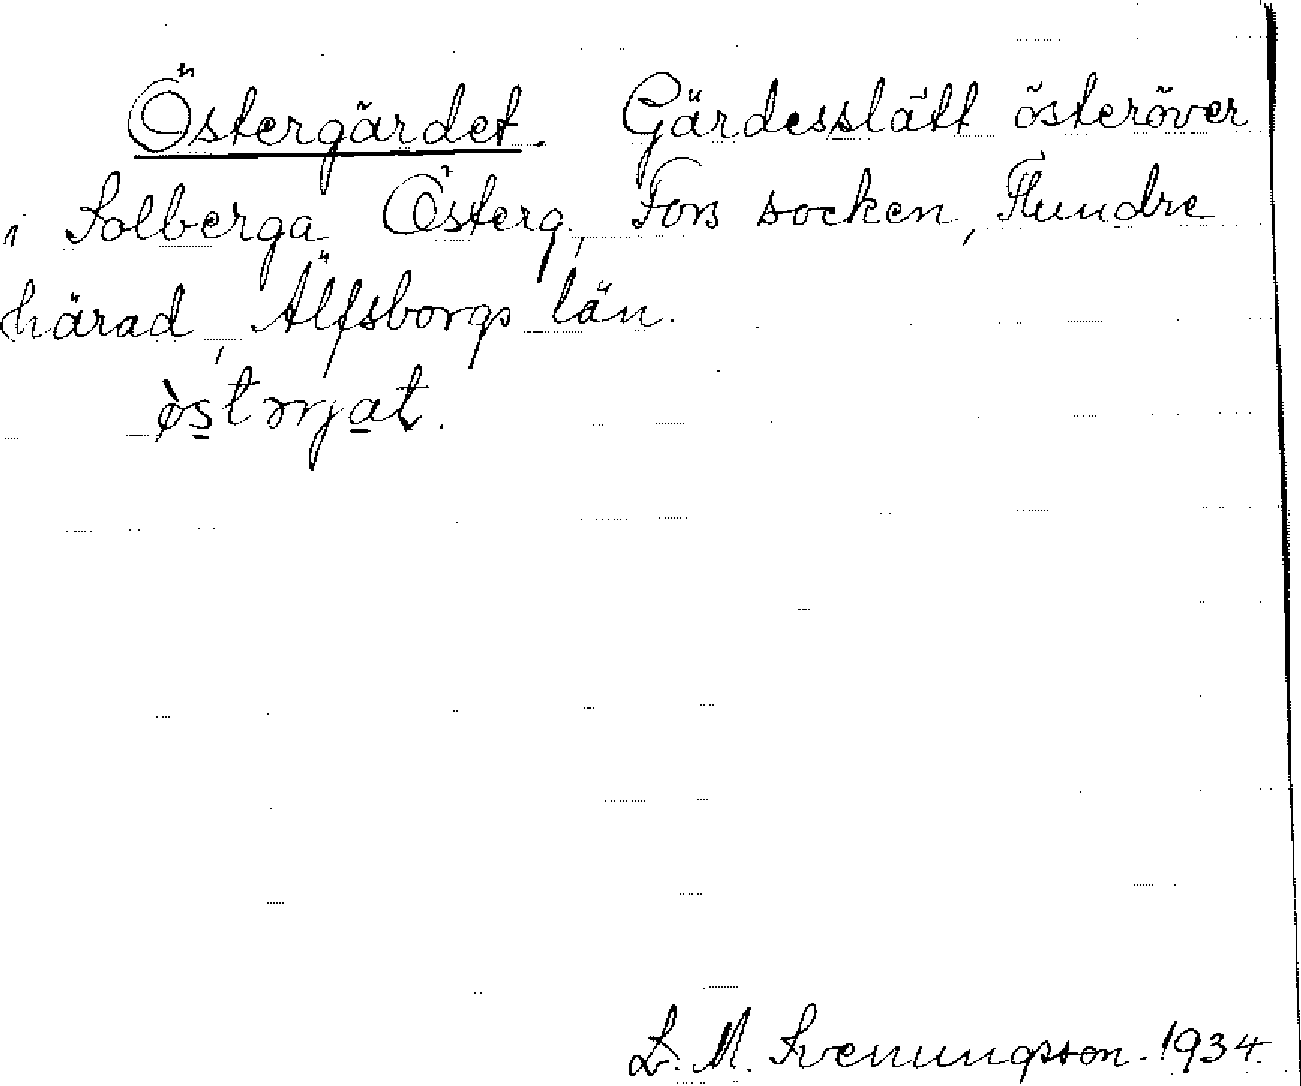 Östergärdet. Gärdesslätt österöver
i Solberga Österg, Fors socken, Flundre
härad, Älfsborgs län.
L. M. Svenungsson. 1934.